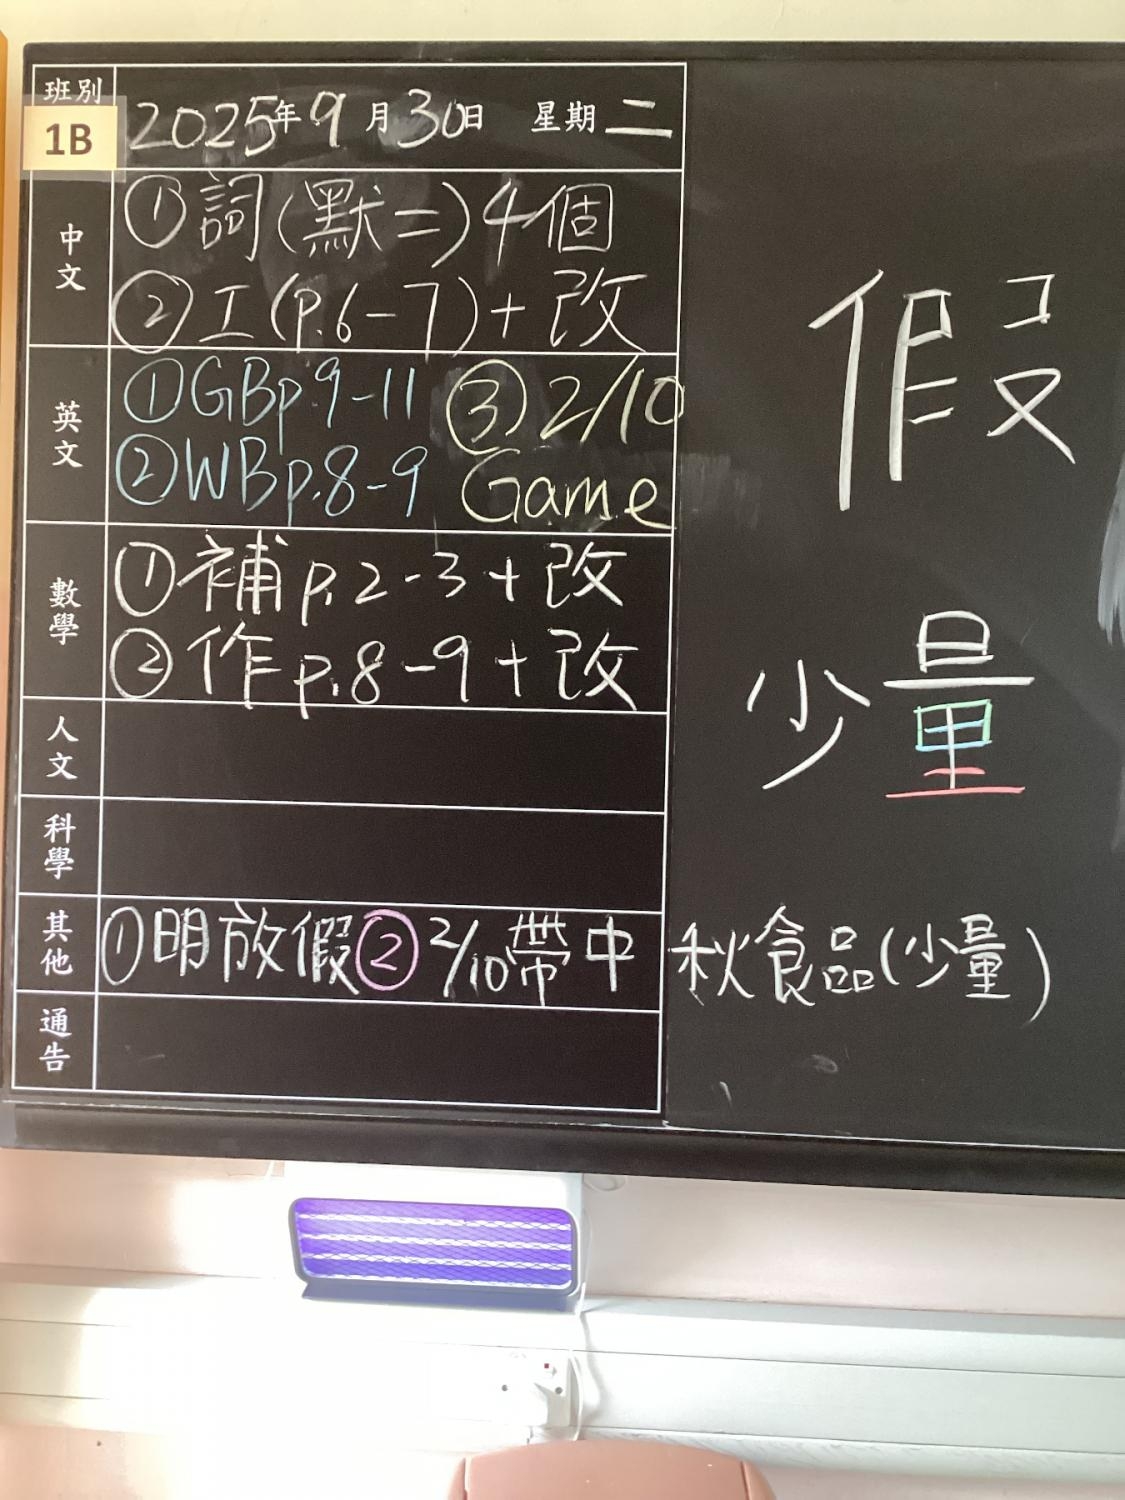 班別
1B
2025年9月30日 星期二
中文
①詞(默二)4個
②工(p.6-7)+改
英文
①GBp.9-11 ③2/10
②WBp.8-9 Game
數學
①補p.2-3+改
②作p.8-9+改
人文
科學
其他
①明放假②2/10帶中秋食品(少量)
通告
假
少量